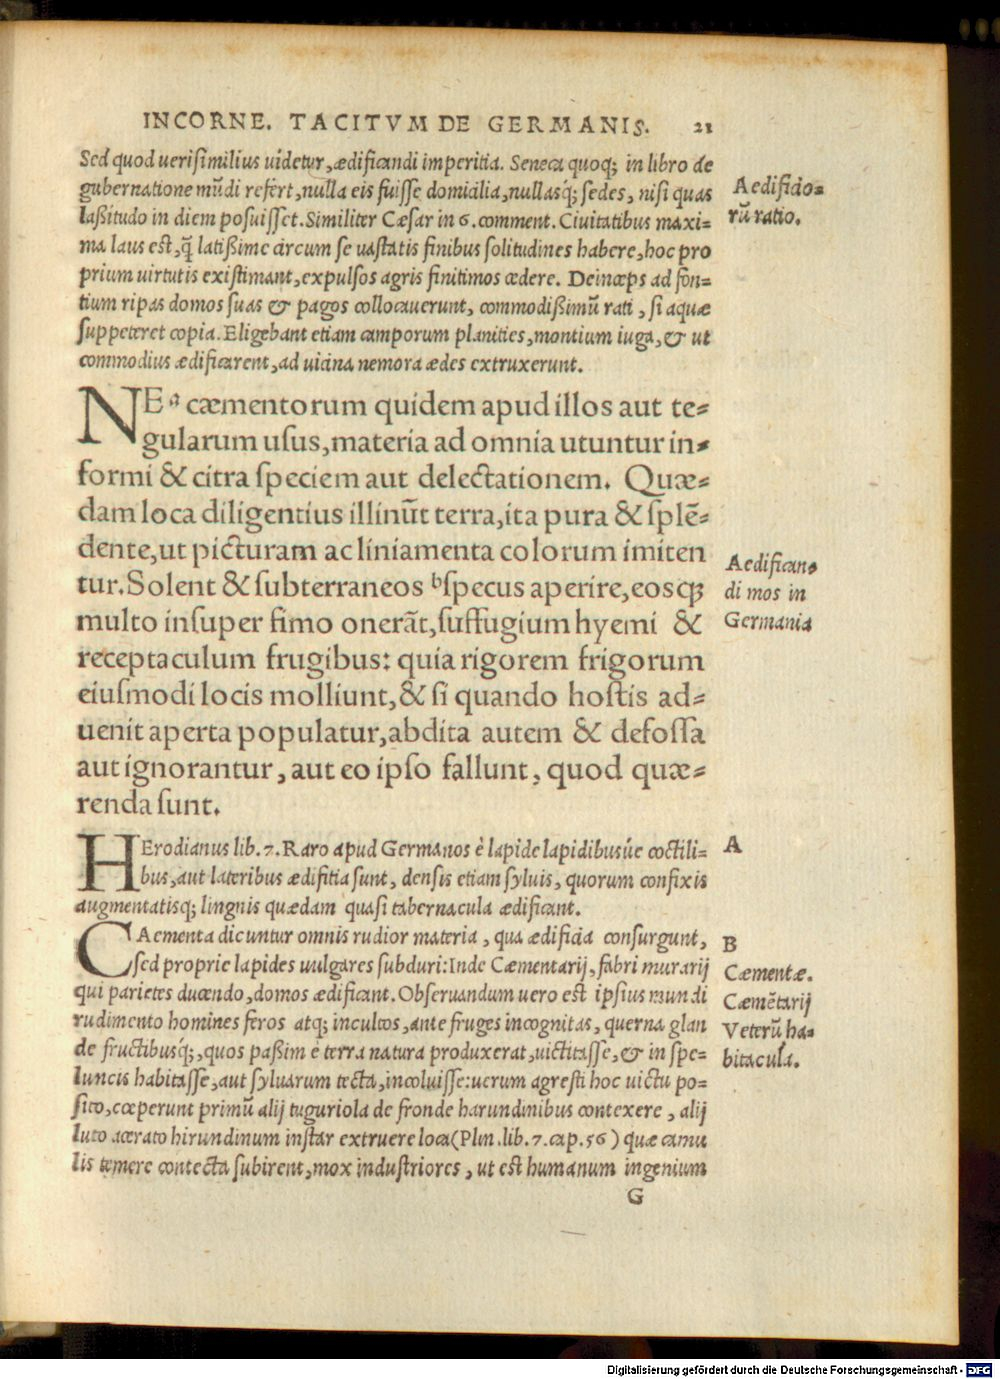 INCORNE. TACITVM DE GERMANIS. 21
Sed quod uerisimilius uidetur, ædificandi imperitia. Seneca quoq; in libro de
gubernatione mūdi refert, nulla eis fuisse domicilia, nullasq́; sedes, nisi quas
laßitudo in diem posuisset. Similiter Cæsar in 6. comment. Ciuitatibus maxi=
ma laus est, q̄ latißime circum se uastatis finibus solitudines habere, hoc pro
prium uirtutis existimant, expulsos agris finitimos cedere. Deinceps ad fon=
tium ripas domos suas & pagos collocauerunt, commodißimū rati, si aquæ
suppeteret copia. Eligebant etiam camporum planities, montium iuga, & ut
commodius ædificarent, ad uicina nemora ædes extruxerunt.
Aedificio=
rū ratio.
NE ᵃ cæmentorum quidem apud illos aut te=
gularum usus, materia ad omnia utuntur in=
formi & citra speciem aut delectationem. Quæ=
dam loca diligentius illinūt terra, ita pura & splē=
dente, ut picturam ac liniamenta colorum imiten
tur. Solent & subterraneos ᵇspecus aperire, eosq;
multo insuper fimo onerāt, suffugium hyemi &
receptaculum frugibus: quia rigorem frigorum
eiusmodi locis molliunt, & si quando hostis ad=
uenit aperta populatur, abdita autem & defossa
aut ignorantur, aut eo ipso fallunt, quod quæ=
renda sunt.
Aedifican=
di mos in
Germania
HErodianus lib. 7. Raro apud Germanos è lapide lapidibusúe coctili=
bus, aut lateribus ædifitia sunt, densis etiam syluis, quorum confixis
augmentatisq; lingnis quædam quasi tabernacula ædificant.
A
CAementa dicuntur omnis rudior materia, qua ædificia consurgunt,
sed proprie lapides uulgares subduri: Inde Cæmentarij, fabri murarij
qui parietes ducendo, domos ædificant. Obseruandum uero est ipsius mundi
rudimento homines feros atq; incultos, ante fruges incognitas, querna glan
de fructibusq́;, quos paßim è terra natura produxerat, uictitasse, & in spe=
luncis habitasse, aut syluarum tecta, incoluisse: uerum agresti hoc uictu po=
sito, cœperunt primū alij tuguriola de fronde harundinibus contexere, alij
luto acerato hirundinum instar extruere loca (Plin. lib. 7. cap. 56) quæ camu
lis temere contecta subirent, mox industriores, ut est humanum ingenium
B
Cæmentæ.
Cæmētarij
Veterū ha=
bitacula.
G
Digitalisierung gefördert durch die Deutsche Forschungsgemeinschaft - DFG